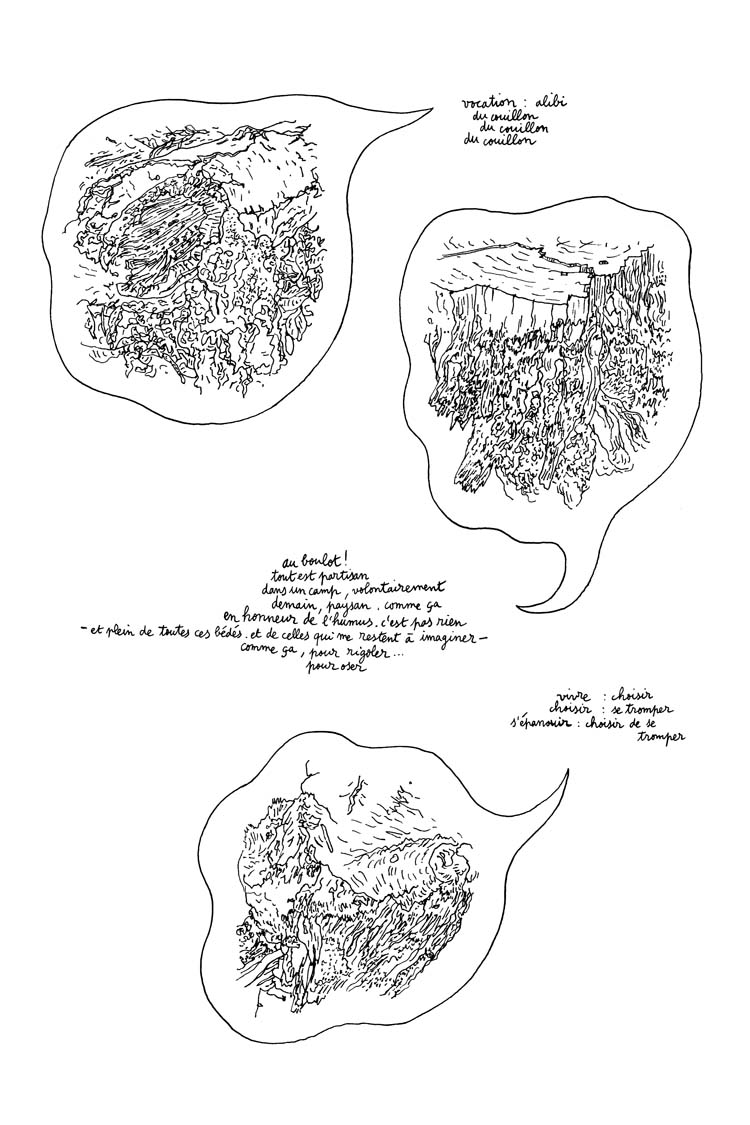 vocation : alibi
du couillon
du couillon
du couillon
au boulot !
tout est partisan
dans un camp, volontairement
demain, paysan. comme ça
en honneur de l'humus. c'est pas rien
– et plein de toutes ces bédés. et de celles qui me restent à imaginer –
comme ça, pour rigoler...
pour oser
vivre : choisir
choisir : se tromper
s'épanouir : choisir de se
tromper